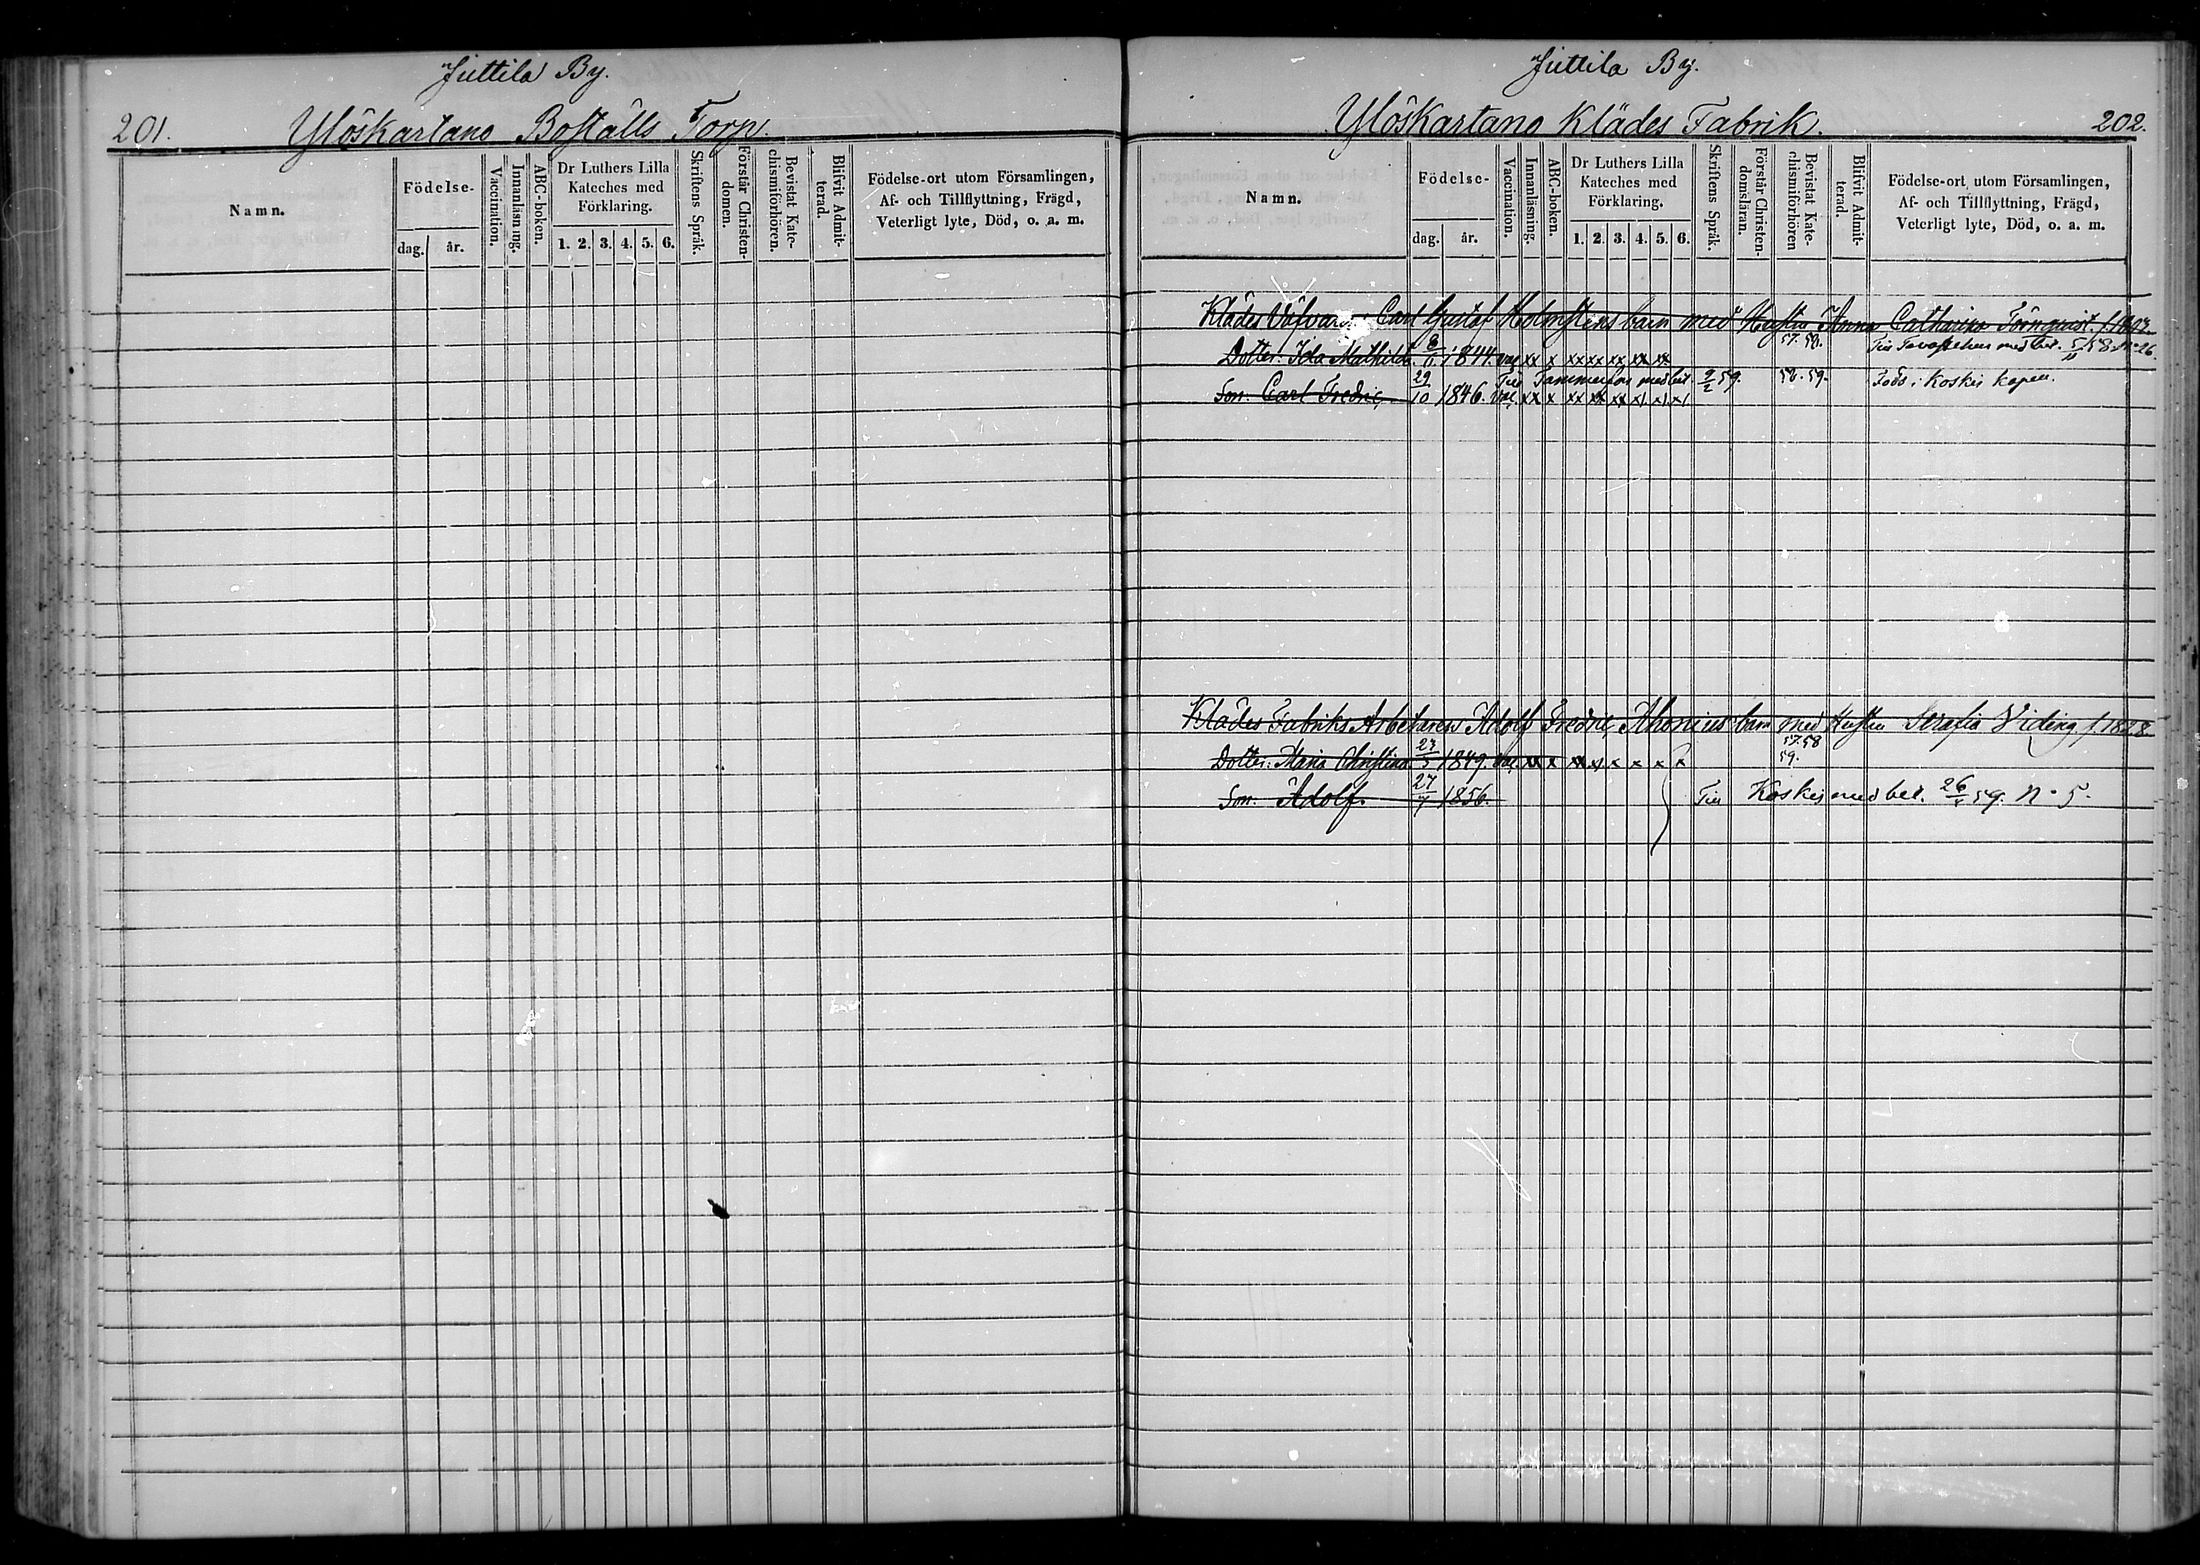 Juttila By.
201. Ylöskartano Boställs Torp.
Namn.
Födelse-
dag. år.
Vaccination.
Innanläsning.
ABC-boken.
Dr Luthers Lilla
Kateches med
Förklaring.
1. 2. 3. 4. 5. 6.
Skriftens Språk.
Förstår Christen-
domen.
Bevistat Kate-
chismiförhören.
Blifvit Admit-
terad.
Födelse-ort utom Församlingen,
Af- och Tillflyttning, Frägd,
Veterligt lyte, Död, o. a. m.
Juttila By.
Ylöskartano Klädes Fabrik. 202.
Namn.
Födelse-
dag. år.
Vaccination.
Innanläsning.
ABC-boken.
Dr Luthers Lilla
Kateches med
Förklaring.
1. 2. 3. 4. 5. 6.
Skriftens Språk.
Förstår Christen-
domsläran.
Bevistat Kate-
chismiförhören
Blifvit Admit-
terad.
Födelse-ort utom Församlingen,
Af- och Tillflyttning, Frägd,
Veterligt lyte, Död, o. a. m.
Klädes Carl Gustaf Holmstens barn med Hustru Anna Catharina Törnqvist
57. 58.
Dotter: Ida Mathilda 1844. vac xx x xx xx xx xx xx Till Tavastehus med bet. 58 No 26
Till Tammerfors med bet. 9/2 59. 58. 59. Född i Koskis kapell.
Son: Carl Fredric 29/10 1846. vac xx x xx xx xx x x x
Klädes Fabriks Arbetarens Adolf Fredric barn med Hustru Serafia Widing f. 1828
57. 58
59.
Dotter: Maria Christina 1849. vac. xx x xx xx x x x x
Son: Adolf. 27/7 1856. Till Koskis med bet. 59. No 5.